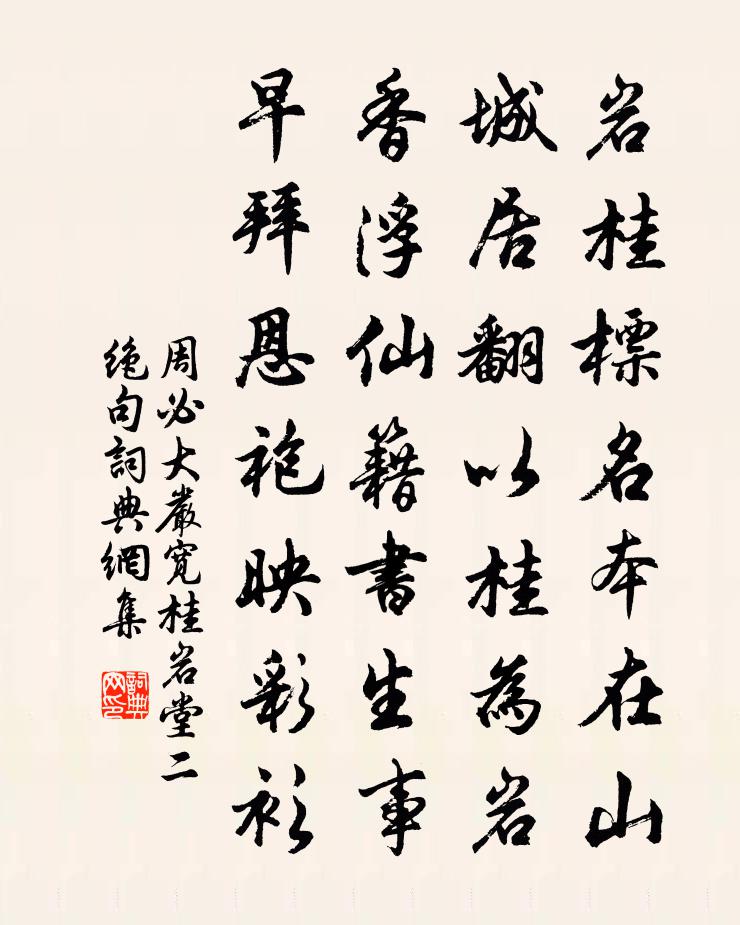 岩桂標名本在山
城居翻以桂為岩
香浮仙籍書生事
早拜恩袍映彩衫
周必大嚴寬桂岩堂二
絶句詞典網集
詞典网印